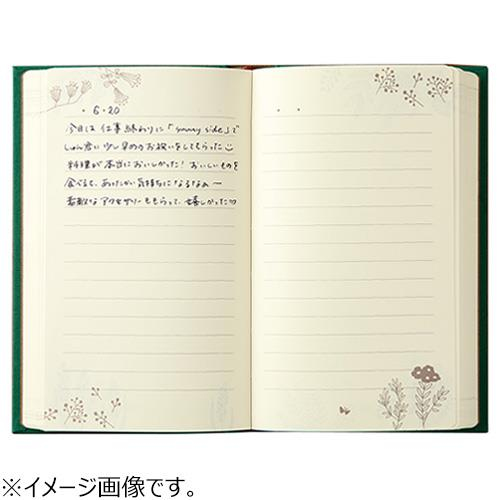 ・6・20
今日は仕事終わりに「sunny side」で
しゅん君に少し早めのお祝いをしてもらった
料理が本当においしかった! おいしいものを
食べると、あったかい気持ちになるなぁ〜
素敵なアクセサリーももらって、嬉しかった♡
・ ・
※イメージ画像です。